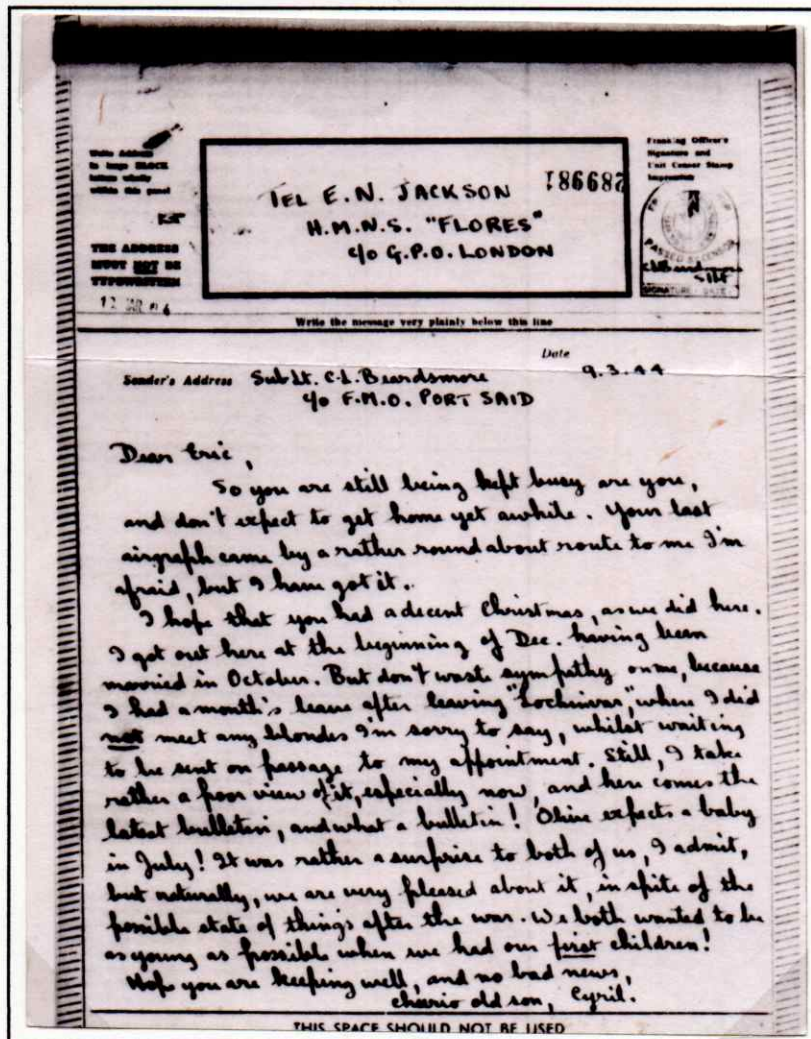 Write Address
in large BLOCK
letters wholly
within this panel
THE ADDRESS
MUST NOT BE
TYPEWRITTEN
TEL E.N. JACKSON
H.M.N.S. "FLORES"
c/o G.P.O. LONDON
289981
Franking Officer's
Signature and
Unit Censor Stamp
Impression
PASSED BY CENSOR
C.L. Beardsmore
S/Lt
SIGNATURE DATE
Write the message very plainly below this line
Sender's Address Sub Lt. C.L. Beardsmore
c/o F.M.O. PORT SAID
Date
9.3.44
Dear Eric,
So you are still being kept busy are you,
and don't expect to get home yet awhile. Your last
airgraph came by a rather round about route to me I'm
afraid, but I have got it.
I hope that you had a decent Christmas, as we did here.
I got out here at the beginning of Dec. having been
married in October. But don't waste sympathy on me, because
I had a month's leave after leaving "Lochinvar", where I did
not meet any blondes I'm sorry to say, whilst waiting
to be sent on passage to my appointment. Still, I take
rather a poor view of it, especially now, and here comes the
latest bulletin, and what a bulletin! Olive expects a baby
in July! It was rather a surprise to both of us, I admit,
but naturally, we are very pleased about it, in spite of the
possible state of things after the war. We both wanted to be
as young as possible when we had our first children!
Hope you are keeping well, and no bad news,
cheerio old son, Cyril.
THIS SPACE SHOULD NOT BE USED